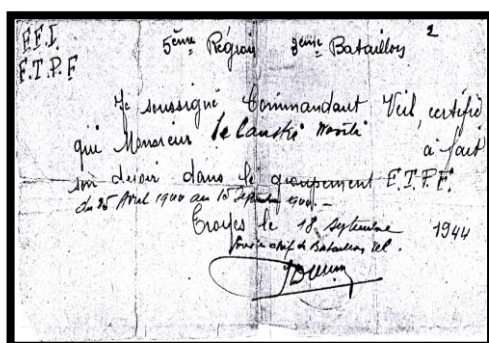 F.F.I. 5ème Région 3ème Bataillon 2
F.T.P.F
Je soussigné Commandant Veil, certifie
que Monsieur
à fait
son devoir dans le groupement F.T.P.F.
du 25 Avril 1944 au 10 Septembre 1944
Troyes le 18 septembre 1944
chef de Bataillon